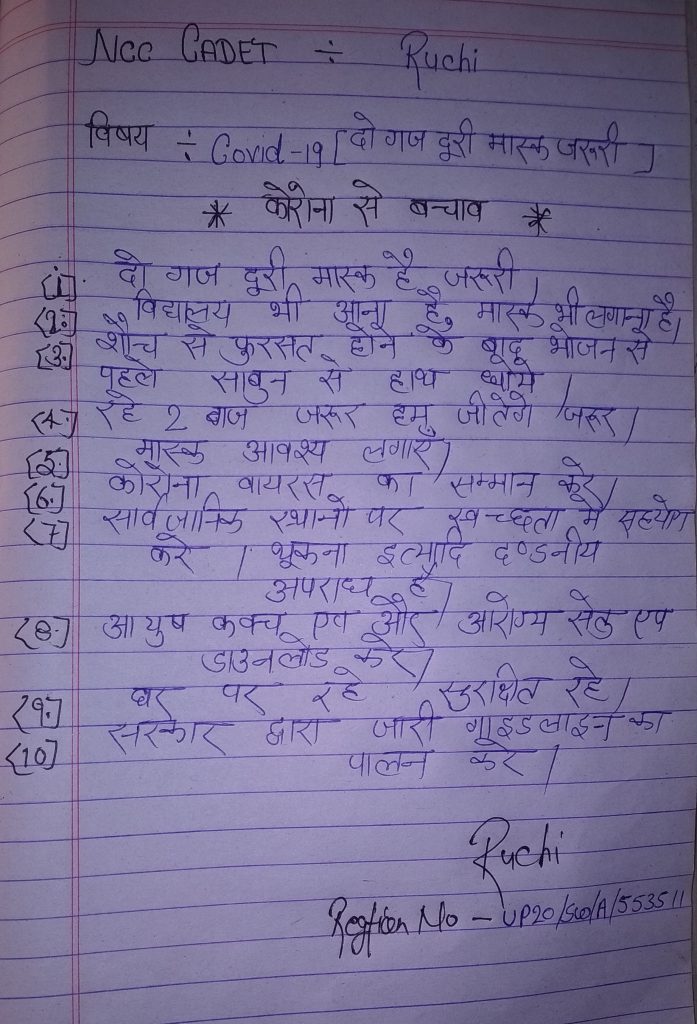 NCC CADET ÷ Ruchi
विषय ÷ Covid-19 [दो गज दूरी मास्क जरुरी]
* कोरोना से बचाव *
[1] दो गज दूरी मास्क है जरूरी।
[2.] विद्यालय भी आना है, मास्क भी लगाना है।
[3.] शौच से फुरसत होने के बाद भोजन से
पहले साबुन से हाथ धोये।
[4.] रहे 2 बाज जरूर हम जीतेगे जरूर।
[5.] मास्क आवश्य लगाएँ।
[6.] कोरोना वायरस का सम्मान करे।
[7] सार्वजानिक स्थानो पर स्वच्छता मे सहयोग
करे। थूकना इत्यादि दण्डनीय
अपराध है।
[8.] आयुष कवच एप और आरोग्य सेतु एप
डाउनलोड करे।
[9.] घर पर रहे, सुरक्षित रहे।
[10] सरकार द्वारा जारी गाइडलाइन का
पालन करे।
Ruchi
No - UP20/SW/A/553511